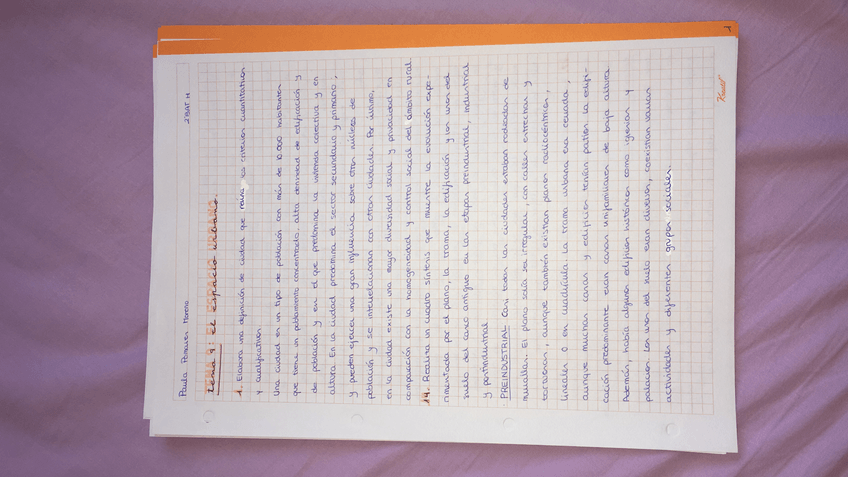 Paula Moreno 2ºBAT H
TEMA 9: EL ESPACIO URBANO.
1. Elabora una definición de ciudad que reúna los criterios cuantitativos
y cualitativos
Una ciudad es un tipo de población con más de 10.000 habitantes
que tiene un poblamiento concentrado, alta densidad de edificación y
de población y en el que predomina la vivienda colectiva y en
altura. En la ciudad predomina el sector secundario y primario,
y pueden ejercer una gran influencia sobre otros núcleos de
población y se interrelacionan con otras ciudades. Por último,
en la ciudad existe una mayor diversidad social y privacidad en
comparación con la homogeneidad y control social del ámbito rural
14. Realiza un cuadro síntesis que muestre la evolución expe-
rimentada por el plano, la trama, la edificación y los usos del
suelo del casco antiguo en las etapas preindustrial, industrial
y postindustrial
PREINDUSTRIAL Casi todas las ciudades estaban rodeadas de
murallas. El plano solía ser irregular, con calles estrechas y
tortuosas, aunque también existían planos radiocéntricos,
lineales o en cuadrícula. La trama urbana era cerrada,
aunque muchas casas y edificios tenían patios. La edifi-
cación predominante eran casas unifamiliares de baja altura
Además, había algunos edificios históricos como iglesias y
palacios. Los usos del suelo eran diversos, coexistían varias
actividades y diferentes grupos sociales.
1